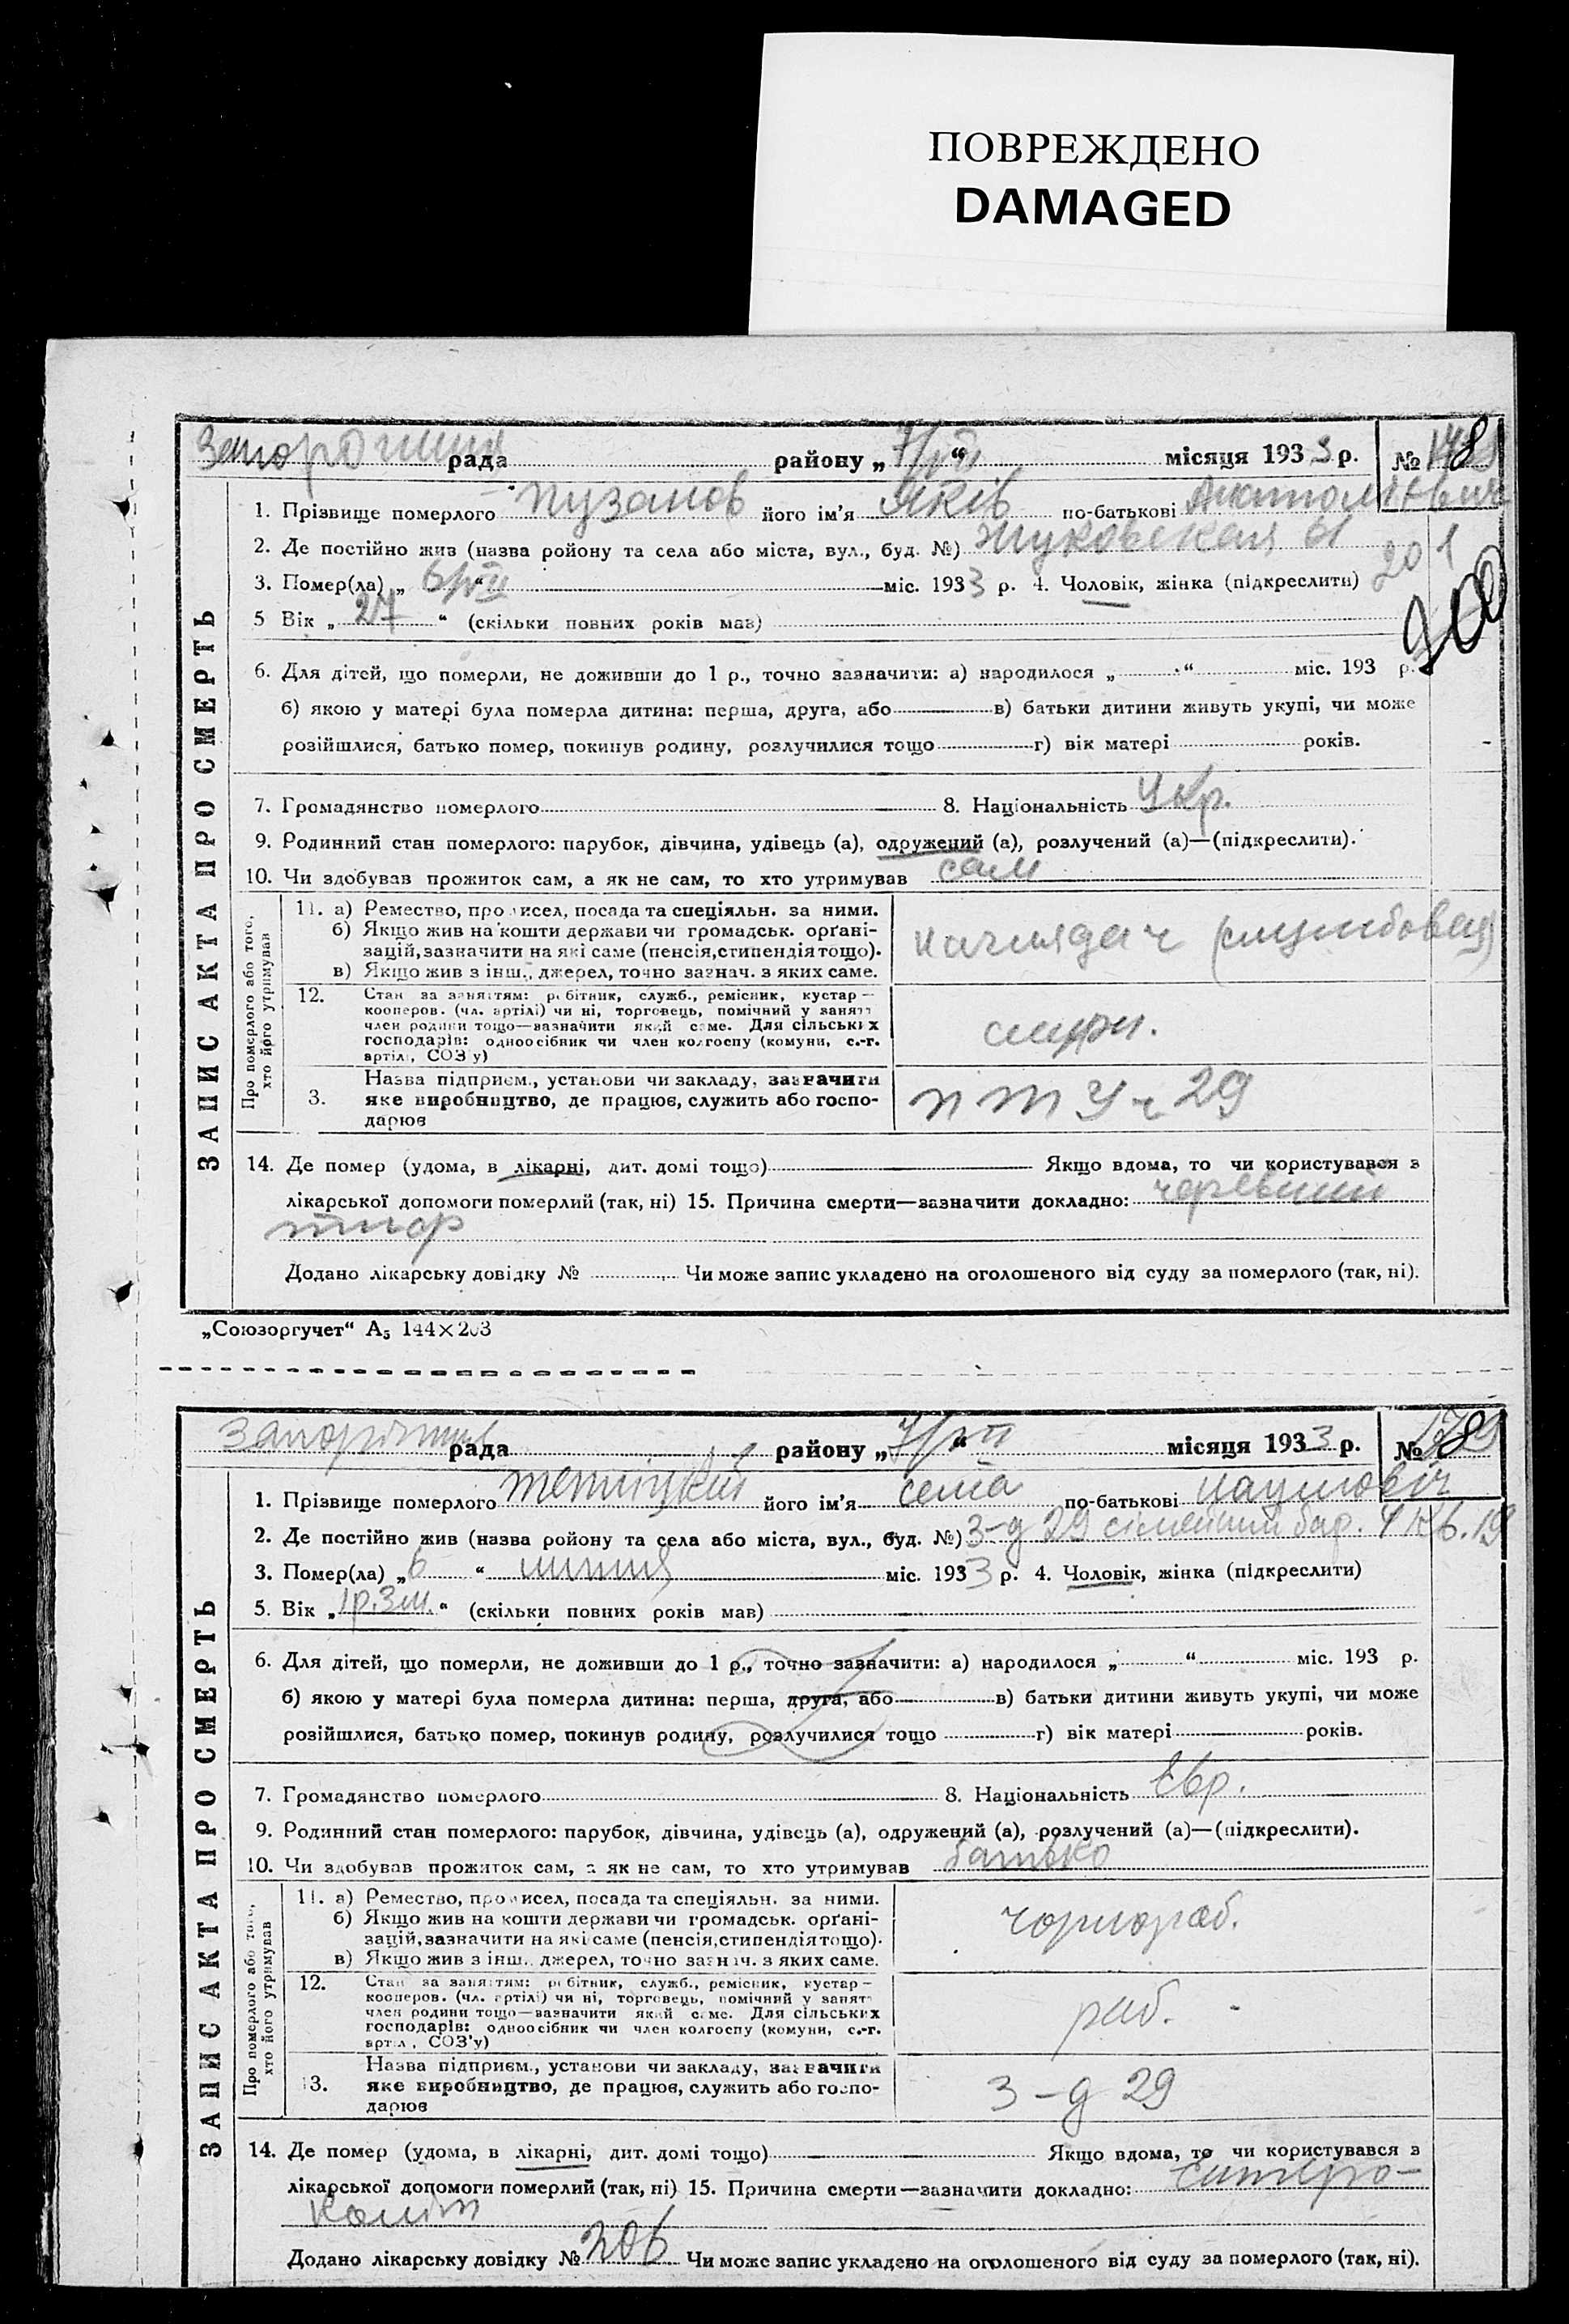 ПОВРЕЖДЕНО
DAMAGED
рада району „7/VII“ місяця 1933 р. №
1. Прізвище померлого Пузанов його ім'я Яків по-батькові
2. Де постійно жив (назва ройону та села або міста, вул., буд. №) Жуковская 61
3. Помер(ла) „ 6/VII “ міс. 1933 р. 4. Чоловік, жінка (підкреслити) 20 1
5 Вік „ 27 “ (скільки повних років мав)
200
6. Для дітей, що померли, не доживши до 1 р., точно зазначити: а) народилося „ “ міс. 193 р.
б) якою у матері була померла дитина: перша, друга, або в) батьки дитини живуть укупі, чи може
розійшлися, батько помер, покинув родину, розлучилися тощо г) вік матері років.
7. Громадянство померлого 8. Національність Укр.
9. Родинний стан померлого: парубок, дівчина, удівець (а), одружений (а), розлучений (а)—(підкреслити).
10. Чи здобував прожиток сам, а як не сам, то хто утримував сам
ЗАПИС АКТА ПРО СМЕРТЬ
Про померлого або того, хто його утримував
11. а) Ремество, промисел, посада та спеціяльн. за ними.
б) Якщо жив на кошти держави чи громадськ. орґані-
зацій, зазначити на які саме (пенсія, стипендія тощо).
в) Якщо жив з інш., джерел, точно зазнач. з яких саме.
наглядач (службовец)
12. Стан за заняттям: робітник, служб., ремісник, кустар—
кооперов. (чл. артілі) чи ні, торговець, помічний у занятт
член родини тощо—зазначити який саме. Для сільських
господарів: одноосібник чи член колгоспу (комуни, с.-г.
артілі, СОЗ'у)
3. Назва підприєм., установи чи закладу, зазначити
яке виробництво, де працює, служить або госпо-
дарює
29
14. Де помер (удома, в лікарні, дит. домі тощо) Якщо вдома, то чи користувався з
лікарської допомоги померлий (так, ні) 15. Причина смерти—зазначити докладно: черевний
тиф
Додано лікарську довідку № Чи може запис укладено на оголошеного від суду за померлого (так, ні).
„Союзоргучет“ А₅ 144×203
рада району „7/VII“ місяця 1933 р. №
1. Прізвище померлого його ім'я сема по-батькові Наумовіч
2. Де постійно жив (назва ройону та села або міста, вул., буд. №) З-д 29 сімейний бар. 4 к 6. 19
3. Помер(ла) „6 “ липня міс. 1933 р. 4. Чоловік, жінка (підкреслити)
5. Вік „ 1р.3м. “ (скільки повних років мав)
6. Для дітей, що померли, не доживши до 1 р., точно зазначити: а) народилося „ “ міс. 193 р.
б) якою у матері була померла дитина: перша, друга, або в) батьки дитини живуть укупі, чи може
розійшлися, батько помер, покинув родину, розлучилися тощо г) вік матері років.
7. Громадянство померлого 8. Національність Євр.
9. Родинний стан померлого: парубок, дівчина, удівець (а), одружений (а), розлучений (а)—(підкреслити).
10. Чи здобував прожиток сам, а як не сам, то хто утримував батько
ЗАПИС АКТА ПРО СМЕРТЬ
Про померлого або того, хто його утримував
11. а) Ремество, промисел, посада та спеціяльн. за ними.
б) Якщо жив на кошти держави чи громадськ. орґані-
зацій, зазначити на які саме (пенсія, стипендія тощо).
в) Якщо жив з інш. джерел, точно зазнач. з яких саме.
чорнораб.
12. Стан за заняттям: робітник, служб., ремісник, кустар—
кооперов. (чл. артілі) чи ні, торговець, помічний у занятт
член родини тощо—зазначити який саме. Для сільських
господарів: одноосібник чи член колгоспу (комуни, с.-г.
артіл, СОЗ'у)
раб.
13. Назва підприєм., установи чи закладу, зазначити
яке виробництво, де працює, служить або госпо-
дарює
З-д 29
14. Де помер (удома, в лікарні, дит. домі тощо) Якщо вдома, то чи користувався з
лікарської допомоги померлий (так, ні) 15. Причина смерти—зазначити докладно: ентеро-
коліт
Додано лікарську довідку № 206 Чи може запис укладено на оголошеного від суду за померлого (так, ні).